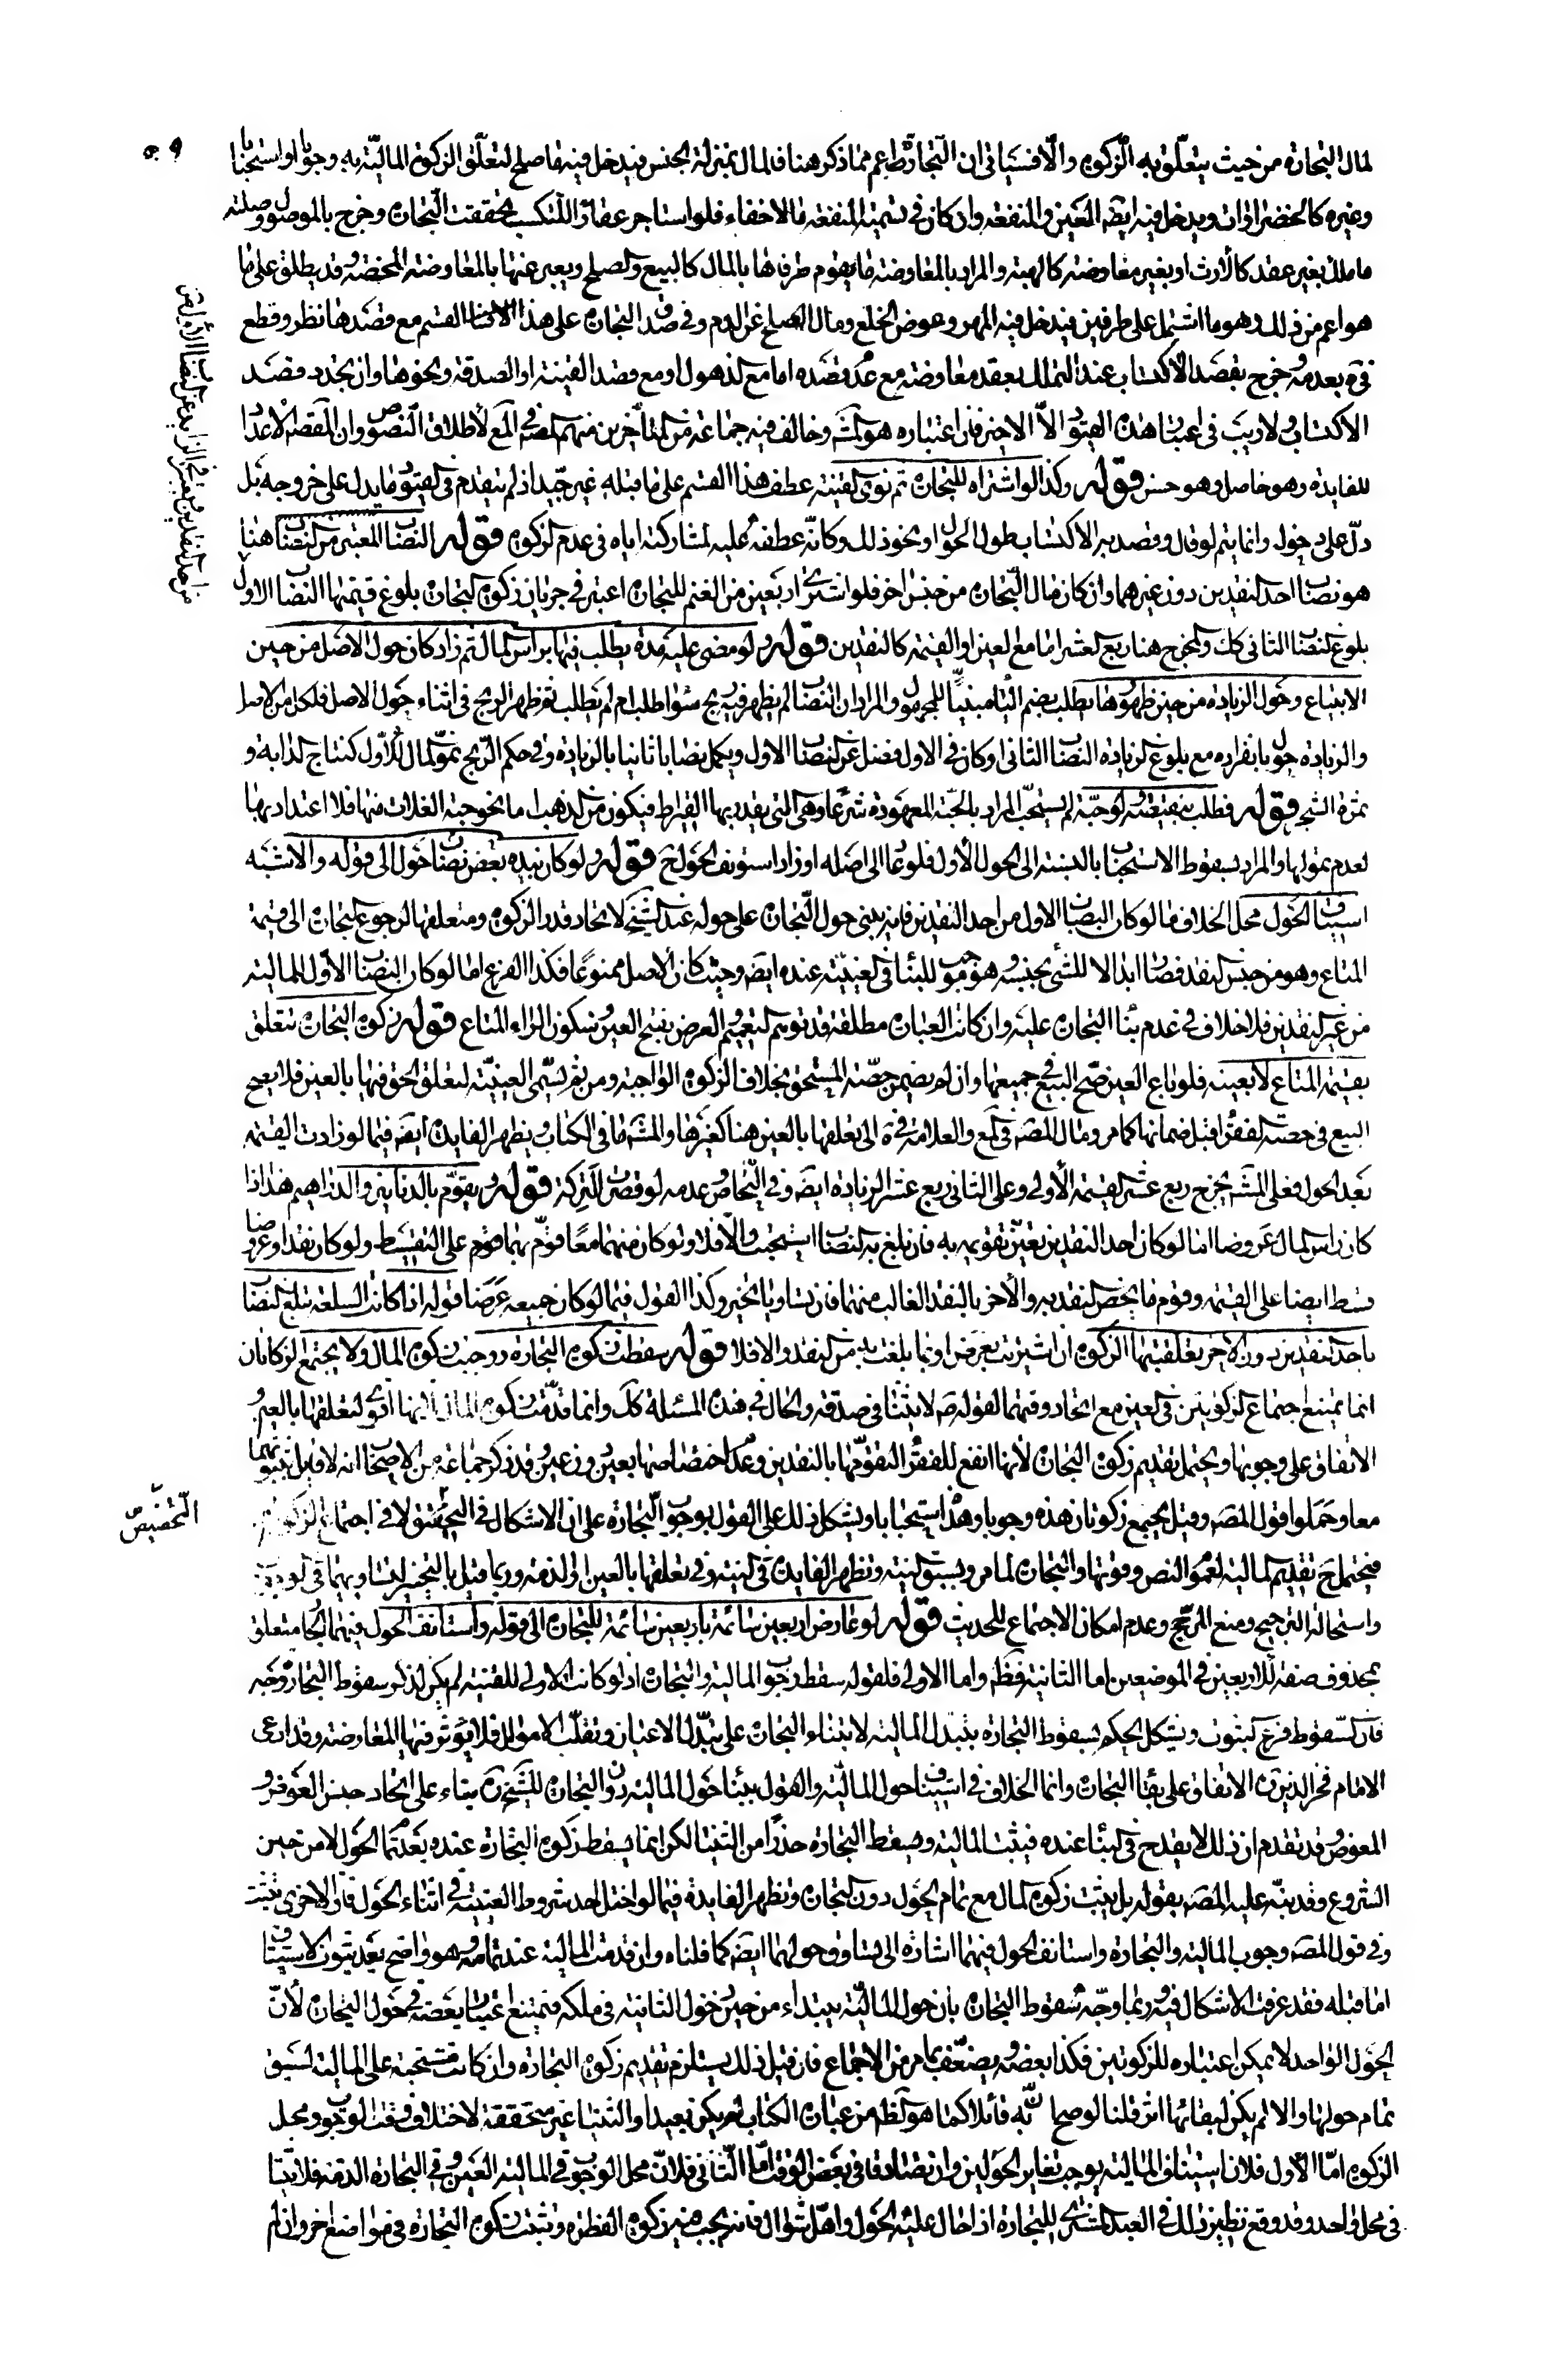 لمال التجارة من حيث يتعلق به الزكوة والا فسياتى ان التجارة اعم مما ذكر هنا فالمال بمنزلة الجنس فيدخل فيه ما صلح لتعلق الزكوة المالية به وجوبا او استحبابا
وغيره كالخضراوات ويدخل فيه ايضه العين والمنفعة وان كان فى تسمية المنفعة مالا خفاء فلو استاجر عقارا للتكسب تحققت التجارة وخرج بالموصول وصلته
ما ملك بغير عقد كالارث او بغير معاوضة كالهبة والمراد بالمعاوضة ما يقوم طرفاها بالمال كالبيع والصلح ويعبر عنها بالمعاوضة المحضة وقد يطلق على ما
هو اعم من ذلك وهو ما اشتمل على طرفين فيدخل فيه المهر وعوض الخلع ومال الصلح عن الدم وفى صدق التجارة على هذا القسم مع قصدها نظر وقطع
فى ه بعدمه وخرج بقصد الاكتساب عند التملك بعقد معاوضة مع عدم قصده اما مع الذهول او مع قصد القنية او الصدقة ونحوها وان تجدد قصد
الاكتساب ولا ريب فى اعتبار هذه القيود الا الاخير فان اعتباره هو المشه وخالف فيه جماعة من المتأخرين منهم المصه فى المع لاطلاق النصوص وان المقصه الاعداد
للفايدة وهو حاصل وهو حسن قوله وكذا لو اشتراه للتجارة ثم نوى القنية عطف هذا القسم على ما قبله غير جيد اذ لم يتقدم فى القيود ما يدل على خروجه بل
دل على دخوله وانما يتم لو قال وقصد به الاكتساب طول الحول او نحو ذلك وكانه عطفه عليه لمشاركته اياه فى عدم الزكوة قوله النصاب المعتبر من النصاب هنا
هو نصاب احد النقدين دون غيرهما وان كان مال التجارة من جنس اخر فلو اشترى اربعين من الغنم للتجارة اعتبر فى جريان زكوة التجارة بلوغ قيمتها النصاب الاول
بلوغ النصاب الثانى كك والمخرج هنا ربع العشر اما مع العين او القيمة كالنقدين قوله ولو مضى عليه مدة يطلب فيها براس المال ثم زاد كان حول الاصل من حين
الابتياع وحول الزيادة من حين ظهورها يطلب بضم الياء مبنيا للمجهول والمراد ان النصاب لم يظهر فيه ربح سواء طلب ام لم يطلب ثم ظهر الربح فى اثناء حول الاصل فلكل من الاصل
والزيادة حول بانفراده مع بلوغ الزيادة النصاب الثانى او كان فى الاول فضل عن النصاب الاول ويكمل نصابا ثانيا بالزيادة وفى حكم الربح نمو المال الاول كنتاج الدابة و
ثمرة الشجر قوله فطلب بنقيصة ولو حبة لم يستحب المراد بالحبة المعهودة شرعا وهى التى يقدر بها القيراط فيكون من الذهب اما نحو حبة الغلات منها فلا اعتداد بها
لعدم تمولها والمراد بسقوط الاستحباب بالنسبة الى الحول الاول فلو عاد الى اصله او زاد استونف الحول ح قوله ولو كان بيده بعض نصاب حول الى قوله والاشبه
استيناف الحول محل الخلاف ما لو كان النصاب الاول من احد النقدين فانه يبنى حول التجارة على حوله عند الشيخ لاتحاد قدر الزكوة ومتعلقها لرجوع التجارة الى قيمة
المتاع وهو من جنس النقد فصار ابدالا للشئ بجنسه وهو موجب للبناء فى العينية عنده ايضه وحيث كان الاصل ممنوعا فكذا الفرع اما لو كان النصاب الاول للمالية
من غير النقدين فلا خلاف فى عدم بناء التجارة عليه وان كانت العبارة مطلقة قد توهم التعميم العرض بفتح العين وسكون الراء المتاع قوله زكوة التجارة تتعلق
بقيمة المتاع لا بعينه فلو باع العين صح البيع فى جميعها وان لم يضمن حصة المستحق بخلاف الزكوة الواجبة ومن ثم تسمى العينية لتعلق الحق فيها بالعين فلا يصح
البيع فى حصة الفقراء قبل ضمانها كما مر ومال المصه فى المع والعلامة فى ه الى تعلقها بالعين هنا كغيرها والمشه ما فى الكتاب ويظهر الفايدة ايضه فيما لو زادت القيمة
بعد الحول فعلى المشه يخرج ربع عشر القيمة الاولى وعلى الثانى ربع عشر الزيادة ايضه وفى التحاص وعدمه لو قصرت التركة قوله ويقوم بالدنانير والدراهم هذا اذا
كان راس المال عروضا اما لو كان احد النقدين تعين تقويمه به فان بلغ به النصاب استحبت والا فلا ولو كان منهما معا قوم بهما قوم على التقسيط ولو كان نقدا وعرضا
قسط ايضا على القيمة وقوم ما يخص النقد به والاخر بالنقد الغالب منهما فان تساويا تخير وكذا القول فيما لو كان جميعه عرضا قوله اذا كانت السلعة تبلغ النصاب
باحد النقدين دون الاخر تعلقت بها الزكوة ان اشتريت بعرض او بما بلغت به من النقد والا فلا قوله سقطت زكوة التجارة ووجبت زكوة المال ولا يجتمع الزكاتان
انما يمتنع اجتماع الزكوتين فى العين مع اتحاد وقتهما لقوله صه لا ثنيا فى صدقة والحال فى هذه المسئلة كك وانما قدمت زكوة المال لانها اقوى لتعلقها بالعين و
الاتفاق على وجوبها ويحتمل تقديم زكوة التجارة لانها انفع للفقراء لتقومها بالنقدين وعدم اختصاصها بعين دون عين وقد ذكر جماعة من الاصحاب انه لا قايل بثبوتهما
معا وحملوا قول المصه وقيل يجتمع زكوتان هذه وجوبا وهذه استحبابا ويشكل ذلك على القول بوجوب التجارة على ان الاشكال فى التحقيق لا فى اجتماع الزكوتين
فيحتمل ح تقديم المالية لعموم النص وقوتها والتجارة لما مر ويسبق النية وتظهر الفايدة فى النية وفى تعلقها بالعين او الذمة وربما قيل بالتخيير لتساويهما فى الوجوب
واستحالة الترجيح ومنع المرجح وعدم امكان الاجتماع للحديث قوله لو عاوض اربعين سائمة باربعين سائمة للتجارة الى قوله واستانف الحول فيهما الجار متعلق
بمحذوف صفة للاربعين فى الموضعين اما الثانية فظ واما الاولى فلقوله سقط وجوب المالية والتجارة اذ لو كانت الاولى للقنية لم يكن لذكر سقوط التجارة وجه
فان السقوط فرع الثبوت ويشكل الحكم بسقوط التجارة بتبدل المالية لابتناء التجارة على تبدل الاعيان وتقلب الاموال فلا يؤثر فيها المعاوضة وقد ادعى
الامام فخر الدين ره الاتفاق على بقاء التجارة وانما الخلاف فى استيناف حول المالية والقول ببناء حول المالية دون التجارة للشيخ ره بناء على اتحاد جنس العوض و
المعوض وقد تقدم ان ذلك لا يقدح فى البناء عنده فيثبت المالية ويسقط التجارة حذرا من الثنيا لكن انما يسقط زكوة التجارة عنده بعد تمام الحول لا من حين
الشروع وقد نبه عليه المصه بقوله بل يثبت زكوة المال مع تمام الحول دون التجارة وتظهر الفايدة فيما لو اختل احد شروط العينية فى اثناء الحول فان الاخرى تثبت
وفى قول المصه وجوب المالية والتجارة واستانف الحول فيهما اشارة الى تساوى حولهما ايضه كما قلناه وان قدمت المالية عند تمامه وهو واضح بعد ثبوت الاستيناف
اما قبله فقد عرفت الاشكال فيه وربما وجه سقوط التجارة بان حول المالية يبتداء من حين دخول الثانية فى ملكه فيمتنع اعتبار بعضه فى حول التجارة لان
الحول الواحد لا يمكن اعتباره للزكوتين فكذا بعضه ويضعف بما مر من الاجماع فان قيل ذلك يستلزم تقديم زكوة التجارة وان كانت مستحبة على المالية لسبق
تمام حولها والا لم يكن لبقائها اثر قلنا لو صح الله به قائلا كما هو الظ من عبارة الكتاب لم يكن بعيدا والثنيا غير متحققة لاختلاف وقت الوجوب ومحل
الزكوة اما الاول فلان استيناف المالية يوجب تغاير الحولين وان تصادفا فى بعض الوقت اما الثانى فلان محل الوجوب فى المالية العين وفى التجارة الذمة فلا ثنيا
فى محل واحد وقد وقع نظير ذلك فى العبد المشترى للتجارة اذا حال عليه الحول واهل شوال فانه يجب فيه زكوة الفطرة وتثبت زكوة التجارة فى مواضع اخر وان لم
التخصيص